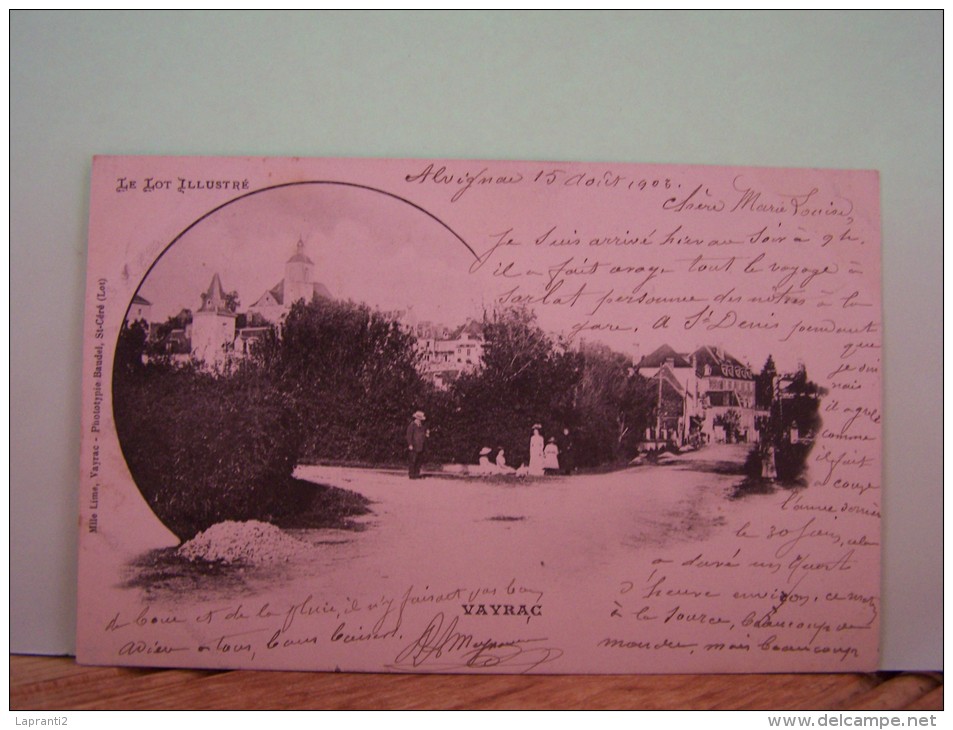 LE LOT ILLUSTRÉ
Mlle Lime, Vayrac - Phototypie Baudel, St-Céré (Lot)
Alvignac 15 Août 1903.
Chère Marie Louise,
Je suis arrivé hier au soir à 9h.
il a fait orage tout le voyage à
Sarlat personne des nôtres à la
gare. A St Denis pendant
que
je dinais
il a grêlé
comme
il fait
à
l'année dernière
le 30 Juin, cela
a duré un Quart
d'heure environ, ce matin
à la source, beaucoup de
monde, mais beaucoup
de boue et de la pluie, il n'y faisait pas bon
adieu a tous, bons baisers.
VAYRAC
Lapranti2
www.delcampe.net